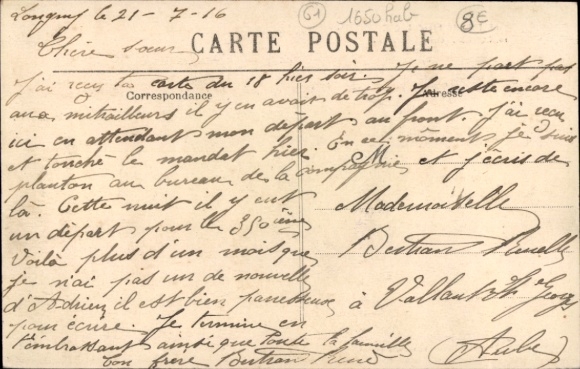 le 21-7-16
51
1650 hab
8€
Chère sœur
CARTE POSTALE
Correspondance
Adresse
J'ai reçu ta carte du 18 hier soir. Je ne part pas
aux mitrailleurs il y en avait de trop. Je reste encore
ici en attendant mon départ au front. J'ai reçu
et touché le mandat hier. En ce moment je suis
planton au bureau de la compagnie et j'écris de
là. Cette nuit il y eut
un départ pour le 350ème
Voilà plus d'un mois que
je n'ai pas un de nouvelle
d'Adrien il est bien paresseux
pour écrire. Je termine en
t'embrassant ainsi que toute la famille
Ton frère Bertran René
Mademoiselle
Bertran
à Vallant St Georges
(Aube)